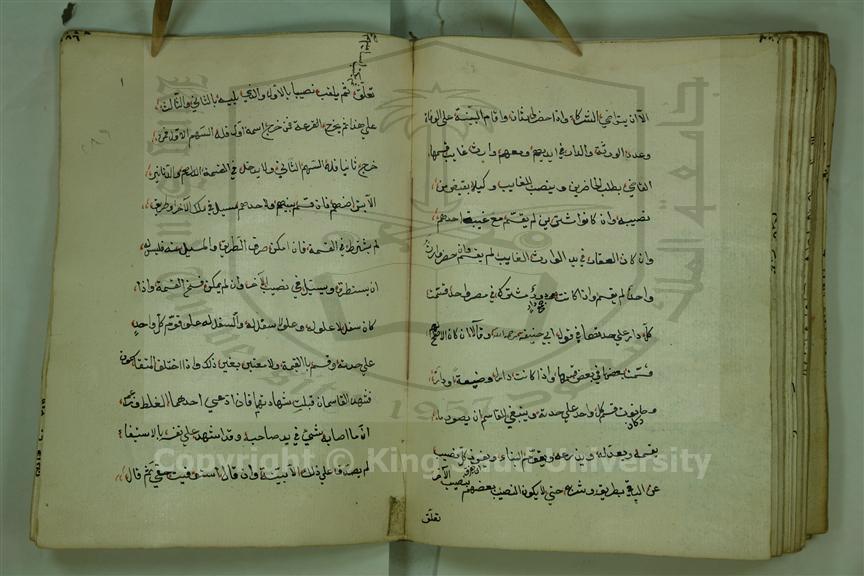 الا ان يتراضي الشركاء واذا حضر وارثان واقاما البينة على الوفاة
وعدد الورثة والدار في ايديهم ومعهم وارث غايب قسمها
القاضي بطلب الحاضرين وينصب للغايب وكيلا يقبض
نصيبه وان كانوا مشترين لم يقسم مع غيبة احدهم
وان كان العقار في يد الوارث الغايب لم يقسم وان حضر وارث
واحد لم يقسم واذا كانت دور مشتركة في مصر واحد قسمت
كل دار على حدتها في قول ابي حنيفة رحمه الله وقالا ان كان الاصلح
قسمت بعضها في بعض قسمها واذا كانت دار وضيعة او دار
وحانوت قسم كل واحد على حدة وينبغي للقاسم ان يصور ما
يقسمه ويعدله ويذرعه ويقوم البناء ويفرز كل نصيب
عن الباقي بطريقه وشربه حتى لا يكون لنصيب بعضهم بنصيب الآخر
تعلق
تعلق ثم يلقب نصيبا بالاول والذي يليه بالثاني والثالث
على هذا ثم يخرج القرعة فمن خرج اسمه اولا فله السهم الاول ومن
خرج ثانيا فله السهم الثاني ولا يدخل في القسمة الدراهم والدنانير
الا بتراضيهم فان قسم بينهم ولاحدهم مسيل في ملك الآخر او طريق
لم يشترط في القسمة فان امكن صرف الطريق والمسيل عنه فليس له
ان يستطرق ويسيل في نصيب الآخر وان لم يمكن فسخ القسمة واذا
كان سفل لا علو له وعلو لا سفل له وسفل له علو قوم كل واحد
على حدته وقسم بالقيمة ولا معتبر بغير ذلك واذا اختلف المتقاسمون
فشهد القاسمان قبلت شهادتهما فان ادعى احدهما الغلط وزعم
ان ما اصابه شيء في يد صاحبه وقد اشهد على نفسه بالاستيفاء
لم يصدق على ذلك الا ببينة وان قال استوفيت حقي ثم قال
Copyright © King Saud University
1957